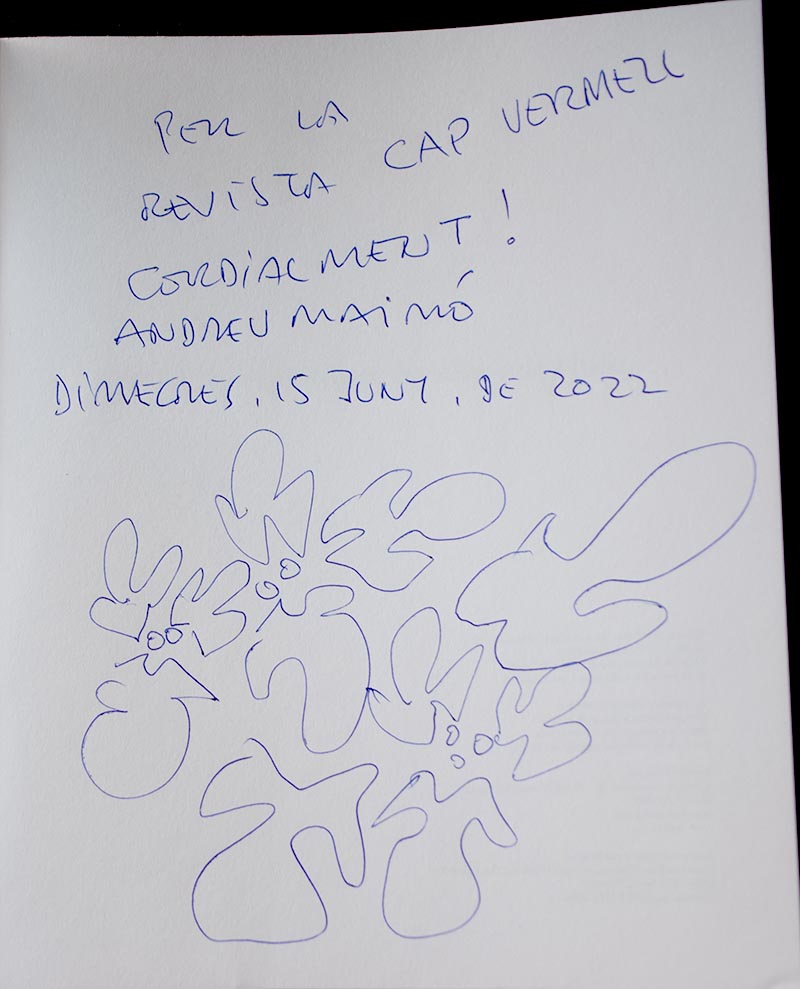 PER LA
REVISTA CAP VERMELL
CORDIALMENT!
ANDREU MAIMÓ
DIMECRES, 15 JUNY, DE 2022